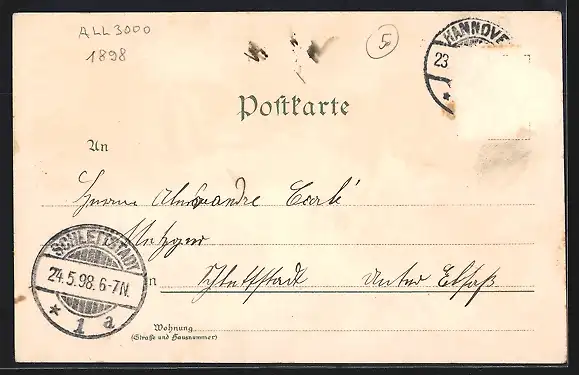 ALL 3000
1898
5
HANNOVE
23
Postkarte
An
Herrn Alexandre
Metzger
in Schlettstadt Unter Elsaß
SCHLETTSTADT
24.5.98.6-7N.
* 1 a
Wohnung
(Straße und Hausnummer)